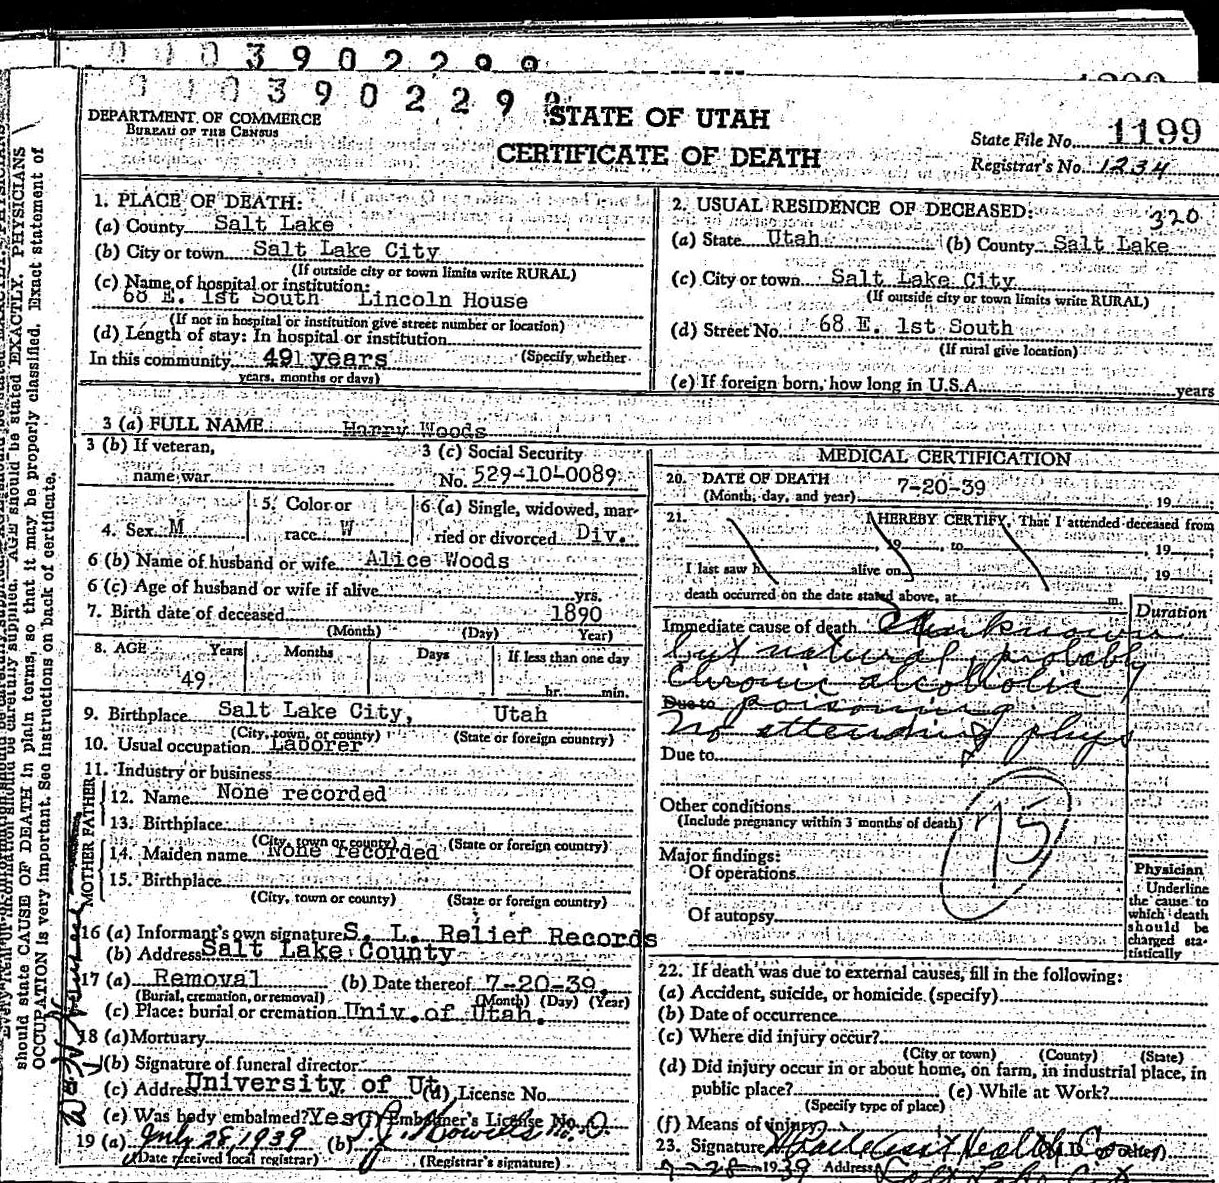 0003902299
0003902299
1200
DEPARTMENT OF COMMERCE
BUREAU OF THE CENSUS
STATE OF UTAH
CERTIFICATE OF DEATH
State File No. 1199
Registrar's No. 1234
1. PLACE OF DEATH:
(a) County Salt Lake
(b) City or town Salt Lake City
(If outside city or town limits write RURAL)
(c) Name of hospital or institution:
68 E. 1st South Lincoln House
(If not in hospital or institution give street number or location)
(d) Length of stay: In hospital or institution
In this community 49 years (Specify whether
years, months or days)
2. USUAL RESIDENCE OF DECEASED: 320
(a) State Utah (b) County Salt Lake
(c) City or town Salt Lake City
(If outside city or town limits write RURAL)
(d) Street No. 68 E. 1st South
(If rural give location)
(e) If foreign born, how long in U.S.A. years
3 (a) FULL NAME Harry Woods
3 (b) If veteran,
name war
3 (c) Social Security
No. 529-10-0089
4. Sex M
5. Color or
race W
6 (a) Single, widowed, mar-
ried or divorced Div.
6 (b) Name of husband or wife Alice Woods
6 (c) Age of husband or wife if alive yrs.
7. Birth date of deceased 1890
(Month) (Day) Year)
8. AGE Years Months Days If less than one day
49. hr. min.
9. Birthplace Salt Lake City, Utah
(City, town, or county) (State or foreign country)
10. Usual occupation Laborer
11. Industry or business
FATHER
12. Name None recorded
13. Birthplace
(City, town or county) (State or foreign country)
MOTHER
14. Maiden name None recorded
15. Birthplace
(City, town or county) (State or foreign country)
16 (a) Informant's own signature S. L. Relief Records
(b) Address Salt Lake County
17 (a) Removal (b) Date thereof 7-20-39.
(Burial, cremation, or removal) (Month) (Day) (Year)
(c) Place: burial or cremation Univ. of Utah.
18 (a) Mortuary
(b) Signature of funeral director
(c) Address University of Ut (d) License No.
(e) Was body embalmed? Yes (f) Embalmer's License No.
19 (a) July 28, 1939 (b)
(Date received local registrar) (Registrar's signature)
MEDICAL CERTIFICATION
20. DATE OF DEATH 7-20-39
(Month, day, and year) 19
21. I HEREBY CERTIFY, That I attended deceased from
, 19 , to , 19
I last saw h alive on , 19
death occurred on the date stated above, at m.
Duration
Immediate cause of death Unknown
but natural, probably
Chronic alcoholic
Due to poisoning
No attending phys
Due to
Other conditions
(Include pregnancy within 3 months of death)
75
Major findings:
Of operations
Of autopsy
Physician
Underline
the cause to
which death
should be
charged sta-
tistically
22. If death was due to external causes, fill in the following:
(a) Accident, suicide, or homicide (specify)
(b) Date of occurrence
(c) Where did injury occur?
(City or town) (County) (State)
(d) Did injury occur in or about home, on farm, in industrial place, in
public place? (e) While at Work?
(Specify type of place)
(f) Means of injury
23. Signature
7-28-1939 Address Salt Lake City
should state CAUSE OF DEATH in plain terms, so that it may be properly classified. Exact statement of
OCCUPATION is very important. See instructions on back of certificate.
AGE should be stated EXACTLY. PHYSICIANS